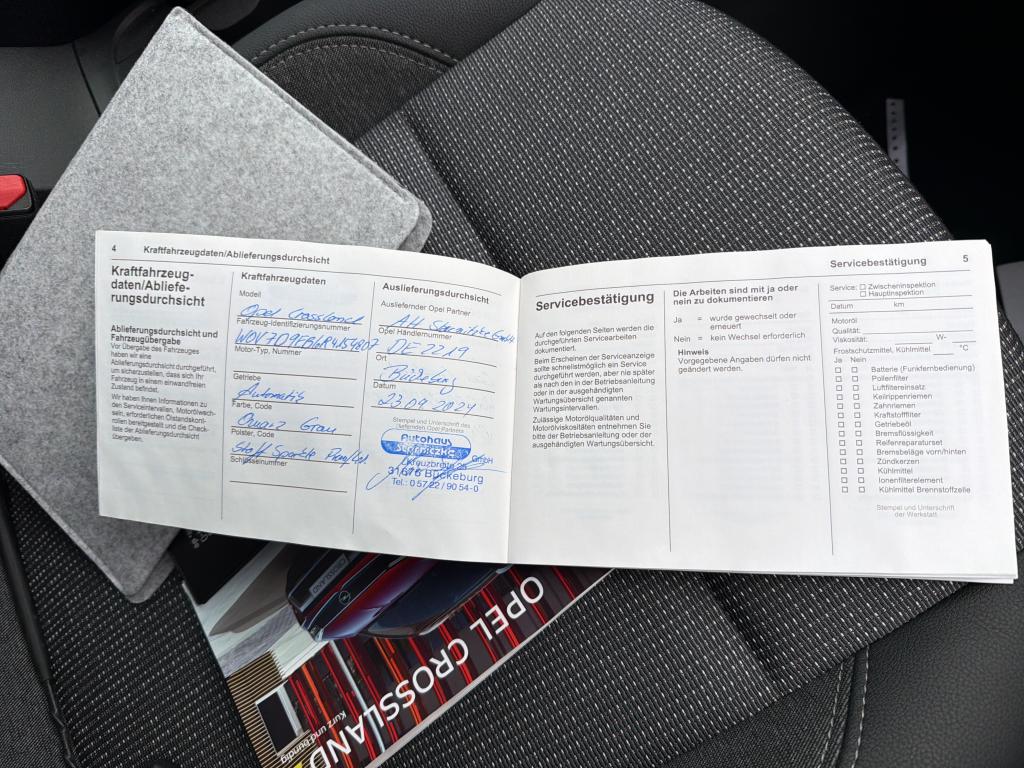 4 Kraftfahrzeugdaten/Ablieferungsdurchsicht
Kraftfahrzeug-
daten/Abliefe-
rungsdurchsicht
Ablieferungsdurchsicht und
Fahrzeugübergabe
Vor Übergabe des Fahrzeuges
haben wir eine
Ablieferungsdurchsicht durchgeführt,
um sicherzustellen, dass sich Ihr
Fahrzeug in einem einwandfreien
Zustand befindet.
Wir haben Ihnen Informationen zu
den Serviceintervallen, Motorölwech-
seln, erforderlichen Ölstandskont-
rollen bereitgestellt und die Check-
liste der Ablieferungsdurchsicht
übergeben.
Kraftfahrzeugdaten
Modell
Opel Crossland
Fahrzeug-Identifizierungsnummer
Motor-Typ, Nummer
Getriebe
Automatik
Farbe, Code
Quarz Grau
Polster, Code
Stoff Sparkle
Schlüsselnummer
Auslieferungsdurchsicht
Ausliefernder Opel Partner
AH GmbH
Opel Händlernummer
DE 2219
Ort
Bückeburg
Datum
23.09.2024
Stempel und Unterschrift des
liefernden Opel Partners
Autohaus
GmbH
Kreuzbreite 25
31675 Bückeburg
Tel.: 0 57 22 / 90 54-0
Servicebestätigung 5
Servicebestätigung
Auf den folgenden Seiten werden die
durchgeführten Servicearbeiten
dokumentiert.
Beim Erscheinen der Serviceanzeige
sollte schnellstmöglich ein Service
durchgeführt werden, aber nie später
als nach den in der Betriebsanleitung
oder in der ausgehändigten
Wartungsübersicht genannten
Wartungsintervallen.
Zulässige Motorölqualitäten und
Motorölviskositäten entnehmen Sie
bitte der Betriebsanleitung oder der
ausgehändigten Wartungsübersicht.
Die Arbeiten sind mit ja oder
nein zu dokumentieren
Ja = wurde gewechselt oder
erneuert
Nein = kein Wechsel erforderlich
Hinweis
Vorgegebene Angaben dürfen nicht
geändert werden.
Service: Zwischeninspektion
Hauptinspektion
Datum km
Motoröl
Qualität: W-
Viskosität:
Frostschutzmittel, Kühlmittel °C
Ja Nein
Batterie (Funkfernbedienung)
Pollenfilter
Luftfiltereinsatz
Keilrippenriemen
Zahnriemen
Kraftstofffilter
Getriebeöl
Bremsflüssigkeit
Reifenreparaturset
Bremsbeläge vorn/hinten
Zündkerzen
Kühlmittel
Ionenfilterelement
Kühlmittel Brennstoffzelle
Stempel und Unterschrift
der Werkstatt
OPEL CROSSLAND
Kurz und bündig
CROSSLAND